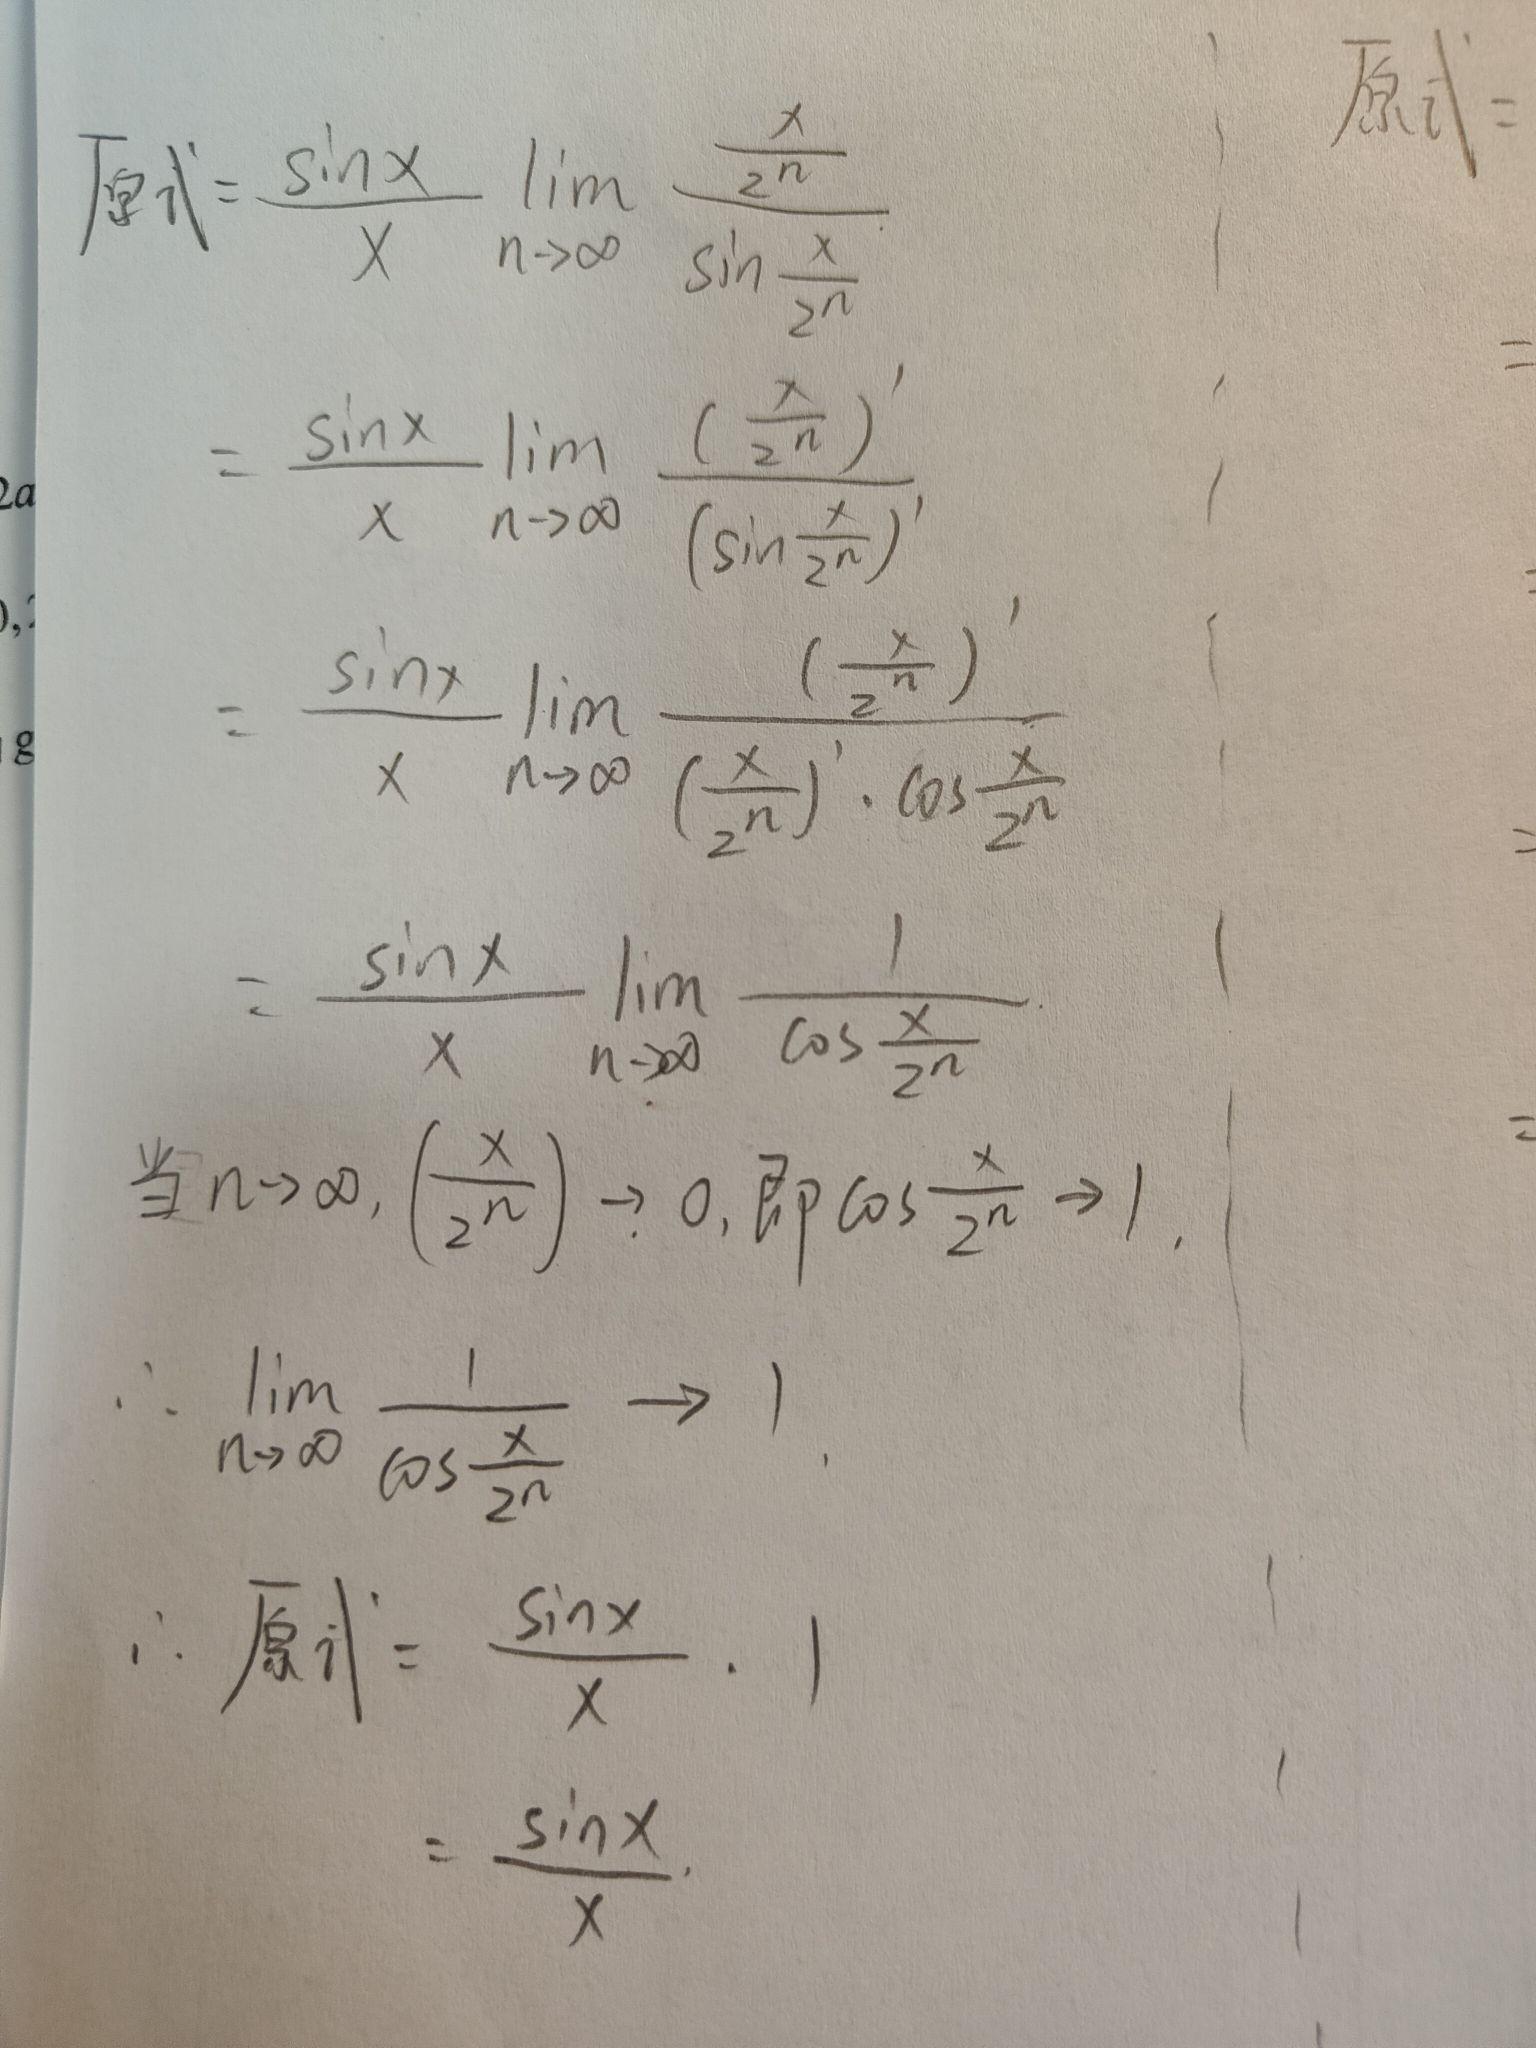 原式 = \frac{sinx}{x} \lim_{n→∞} \frac{\frac{x}{2^n}}{sin\frac{x}{2^n}}
= \frac{sinx}{x} \lim_{n→∞} \frac{(\frac{x}{2^n})'}{(sin\frac{x}{2^n})'}
= \frac{sinx}{x} \lim_{n→∞} \frac{(\frac{x}{2^n})'}{(\frac{x}{2^n})' · cos\frac{x}{2^n}}
= \frac{sinx}{x} \lim_{n→∞} \frac{1}{cos\frac{x}{2^n}}.
当n→∞, (\frac{x}{2^n})→0, 即cos\frac{x}{2^n}→1,
∴ \lim_{n→∞} \frac{1}{cos\frac{x}{2^n}} → 1,
∴ 原式 = \frac{sinx}{x} · 1
= \frac{sinx}{x}.
原式 =
=
=
=
=
2a
0,
g